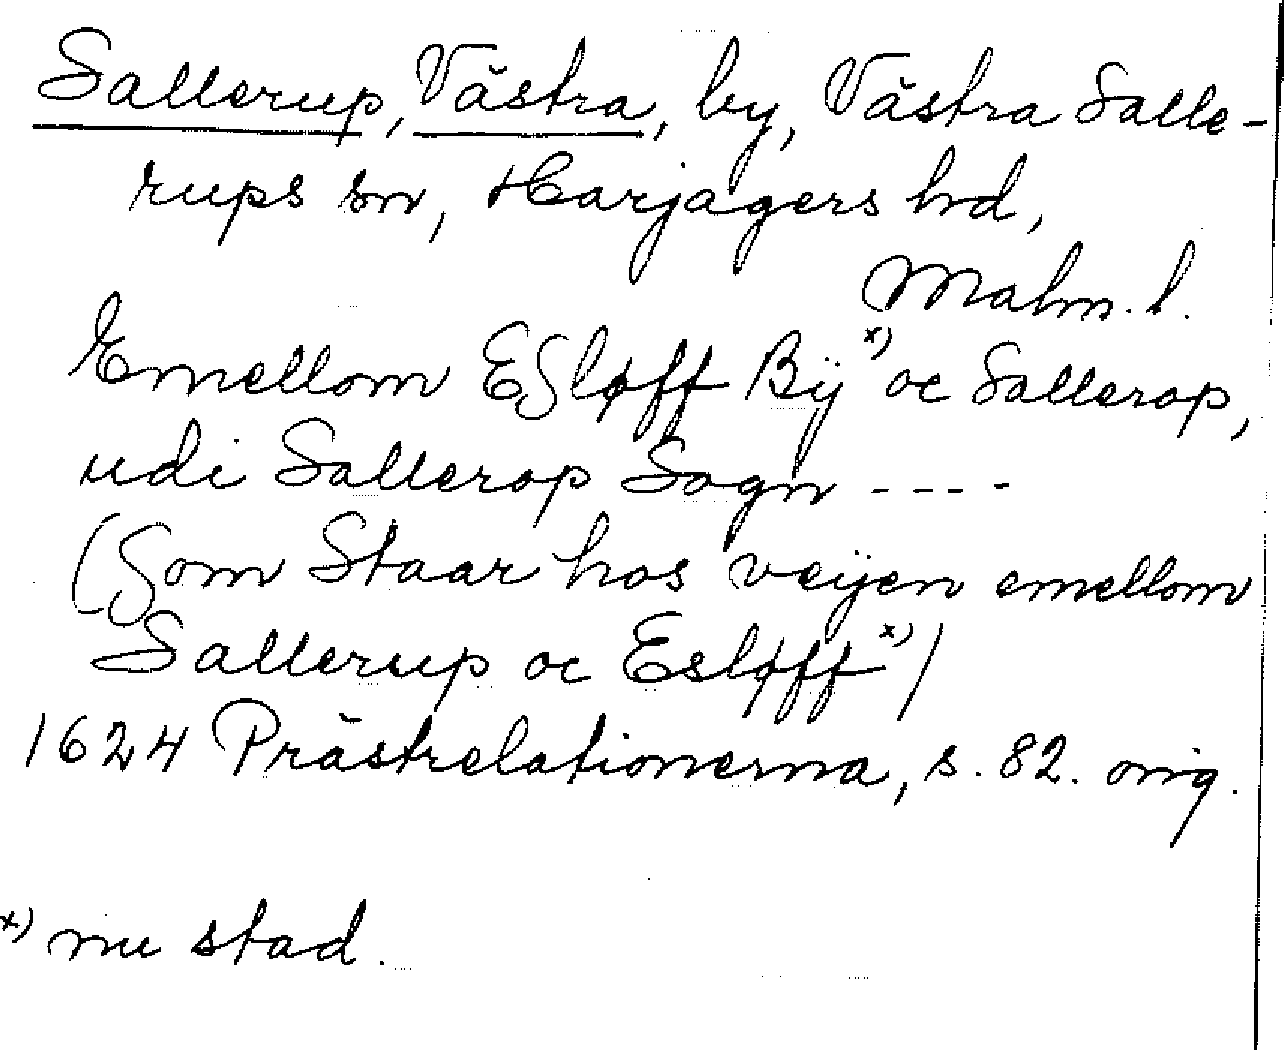 Sallerup, Västra, by, Västra Salle-
rups sn, Harjagers hd,
Malm. l.
Emellom Esløff Bÿ x) oc Sallerop,
udi Sallerop Sogn ----
(Som Staar hos veÿen emellom
Sallerup oc Esløff x))
1624 Prästrelationerna, s. 82. orig.
x) nu stad.